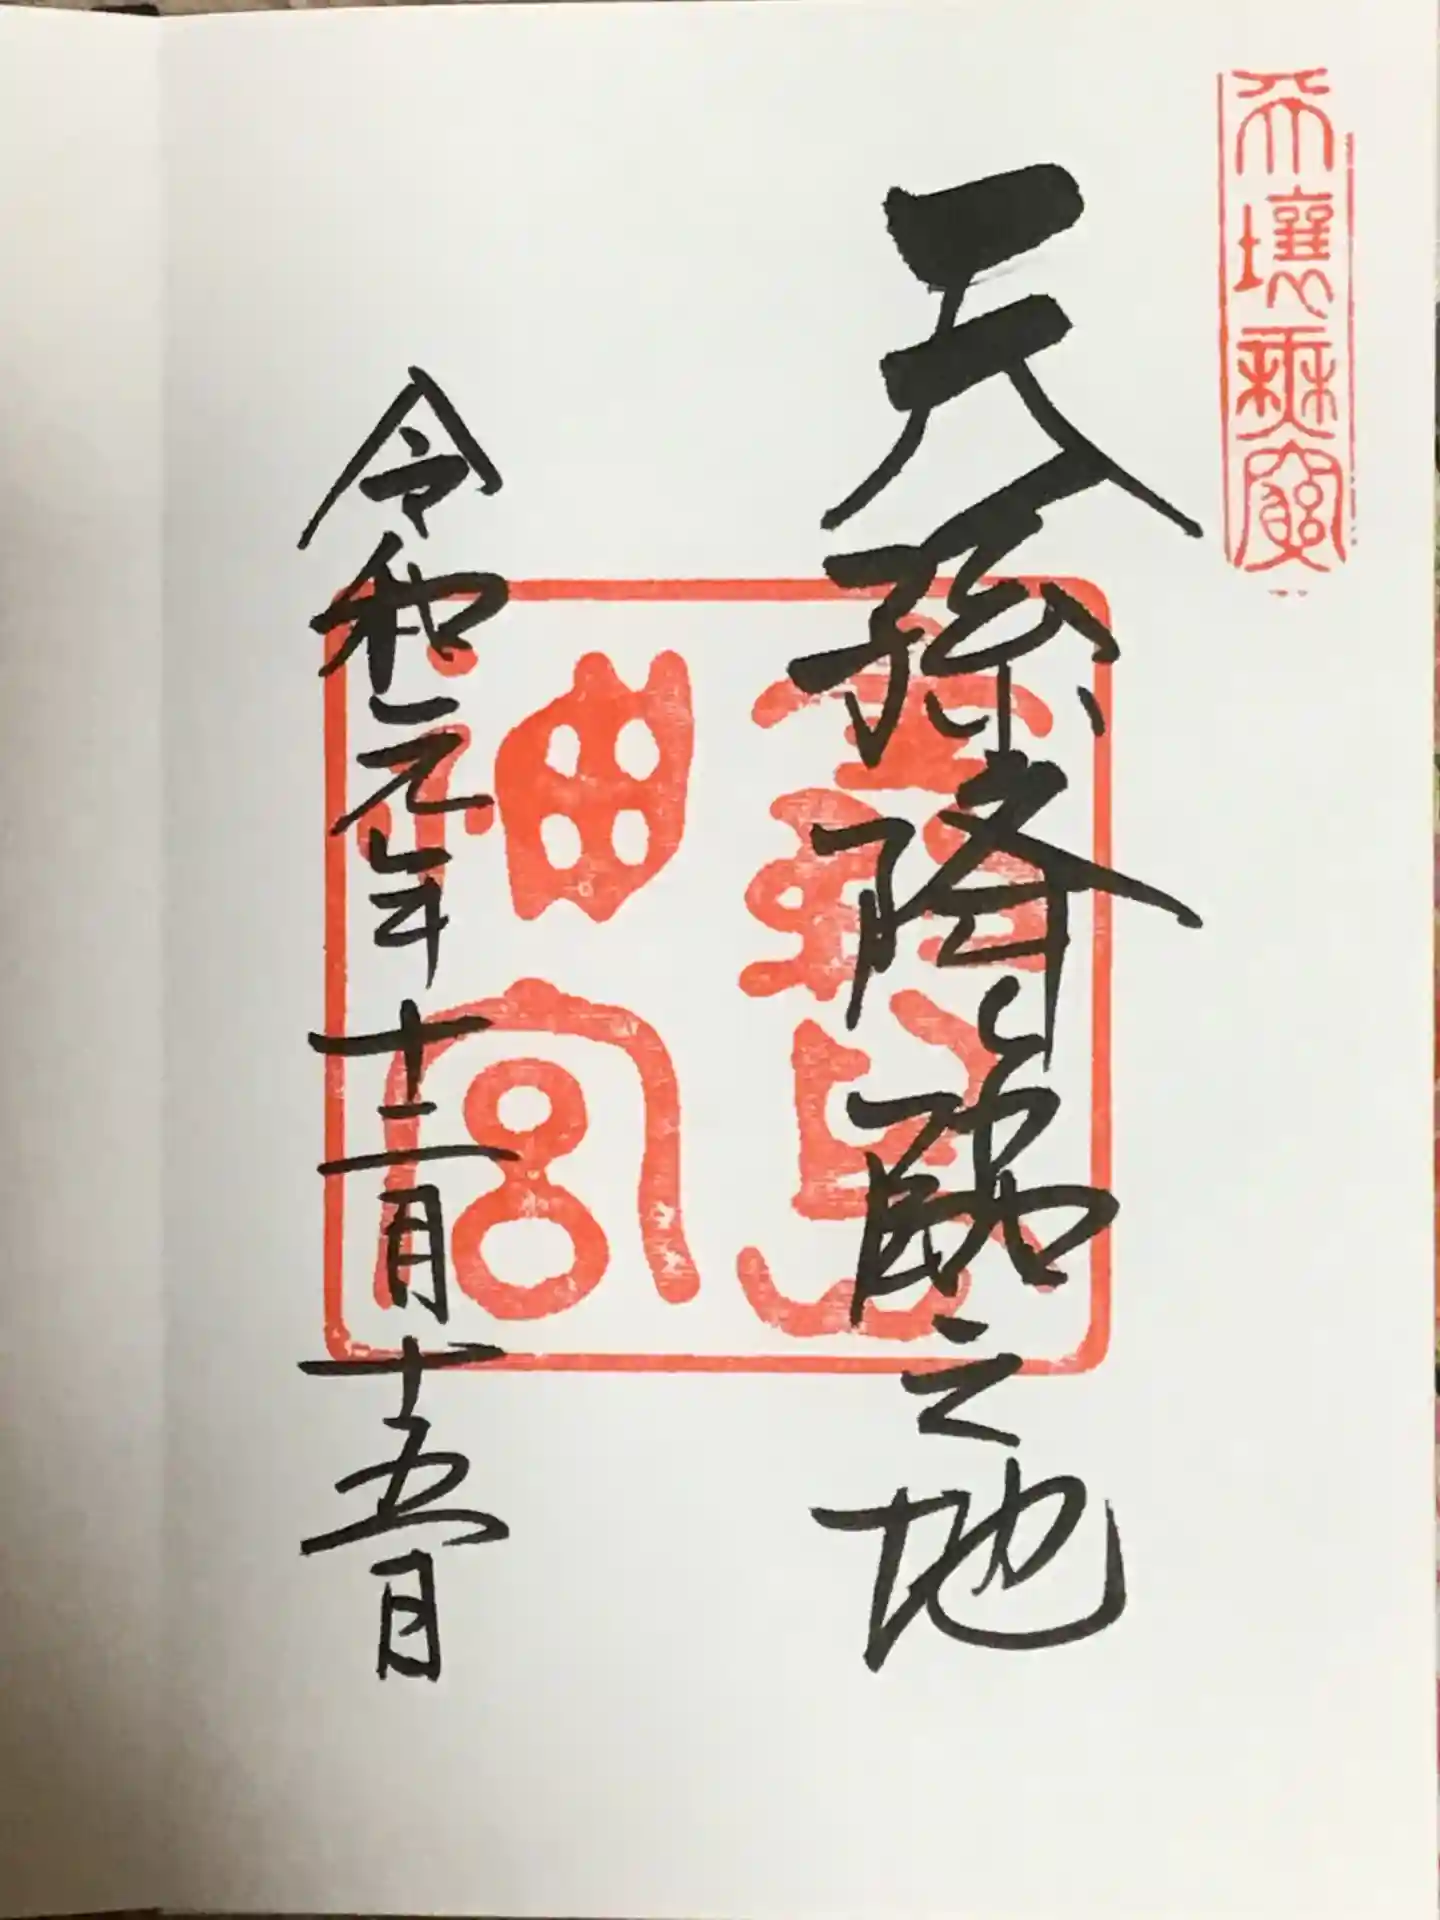 天壌無窮
天孫降臨之地
霧島神宮
令和元年十二月十五日